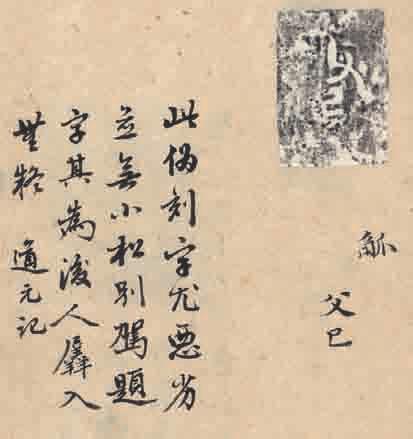 觚
父己
此偽刻字尤惡劣
並無小松別駕題
字其為後人羼入
無疑 通元記